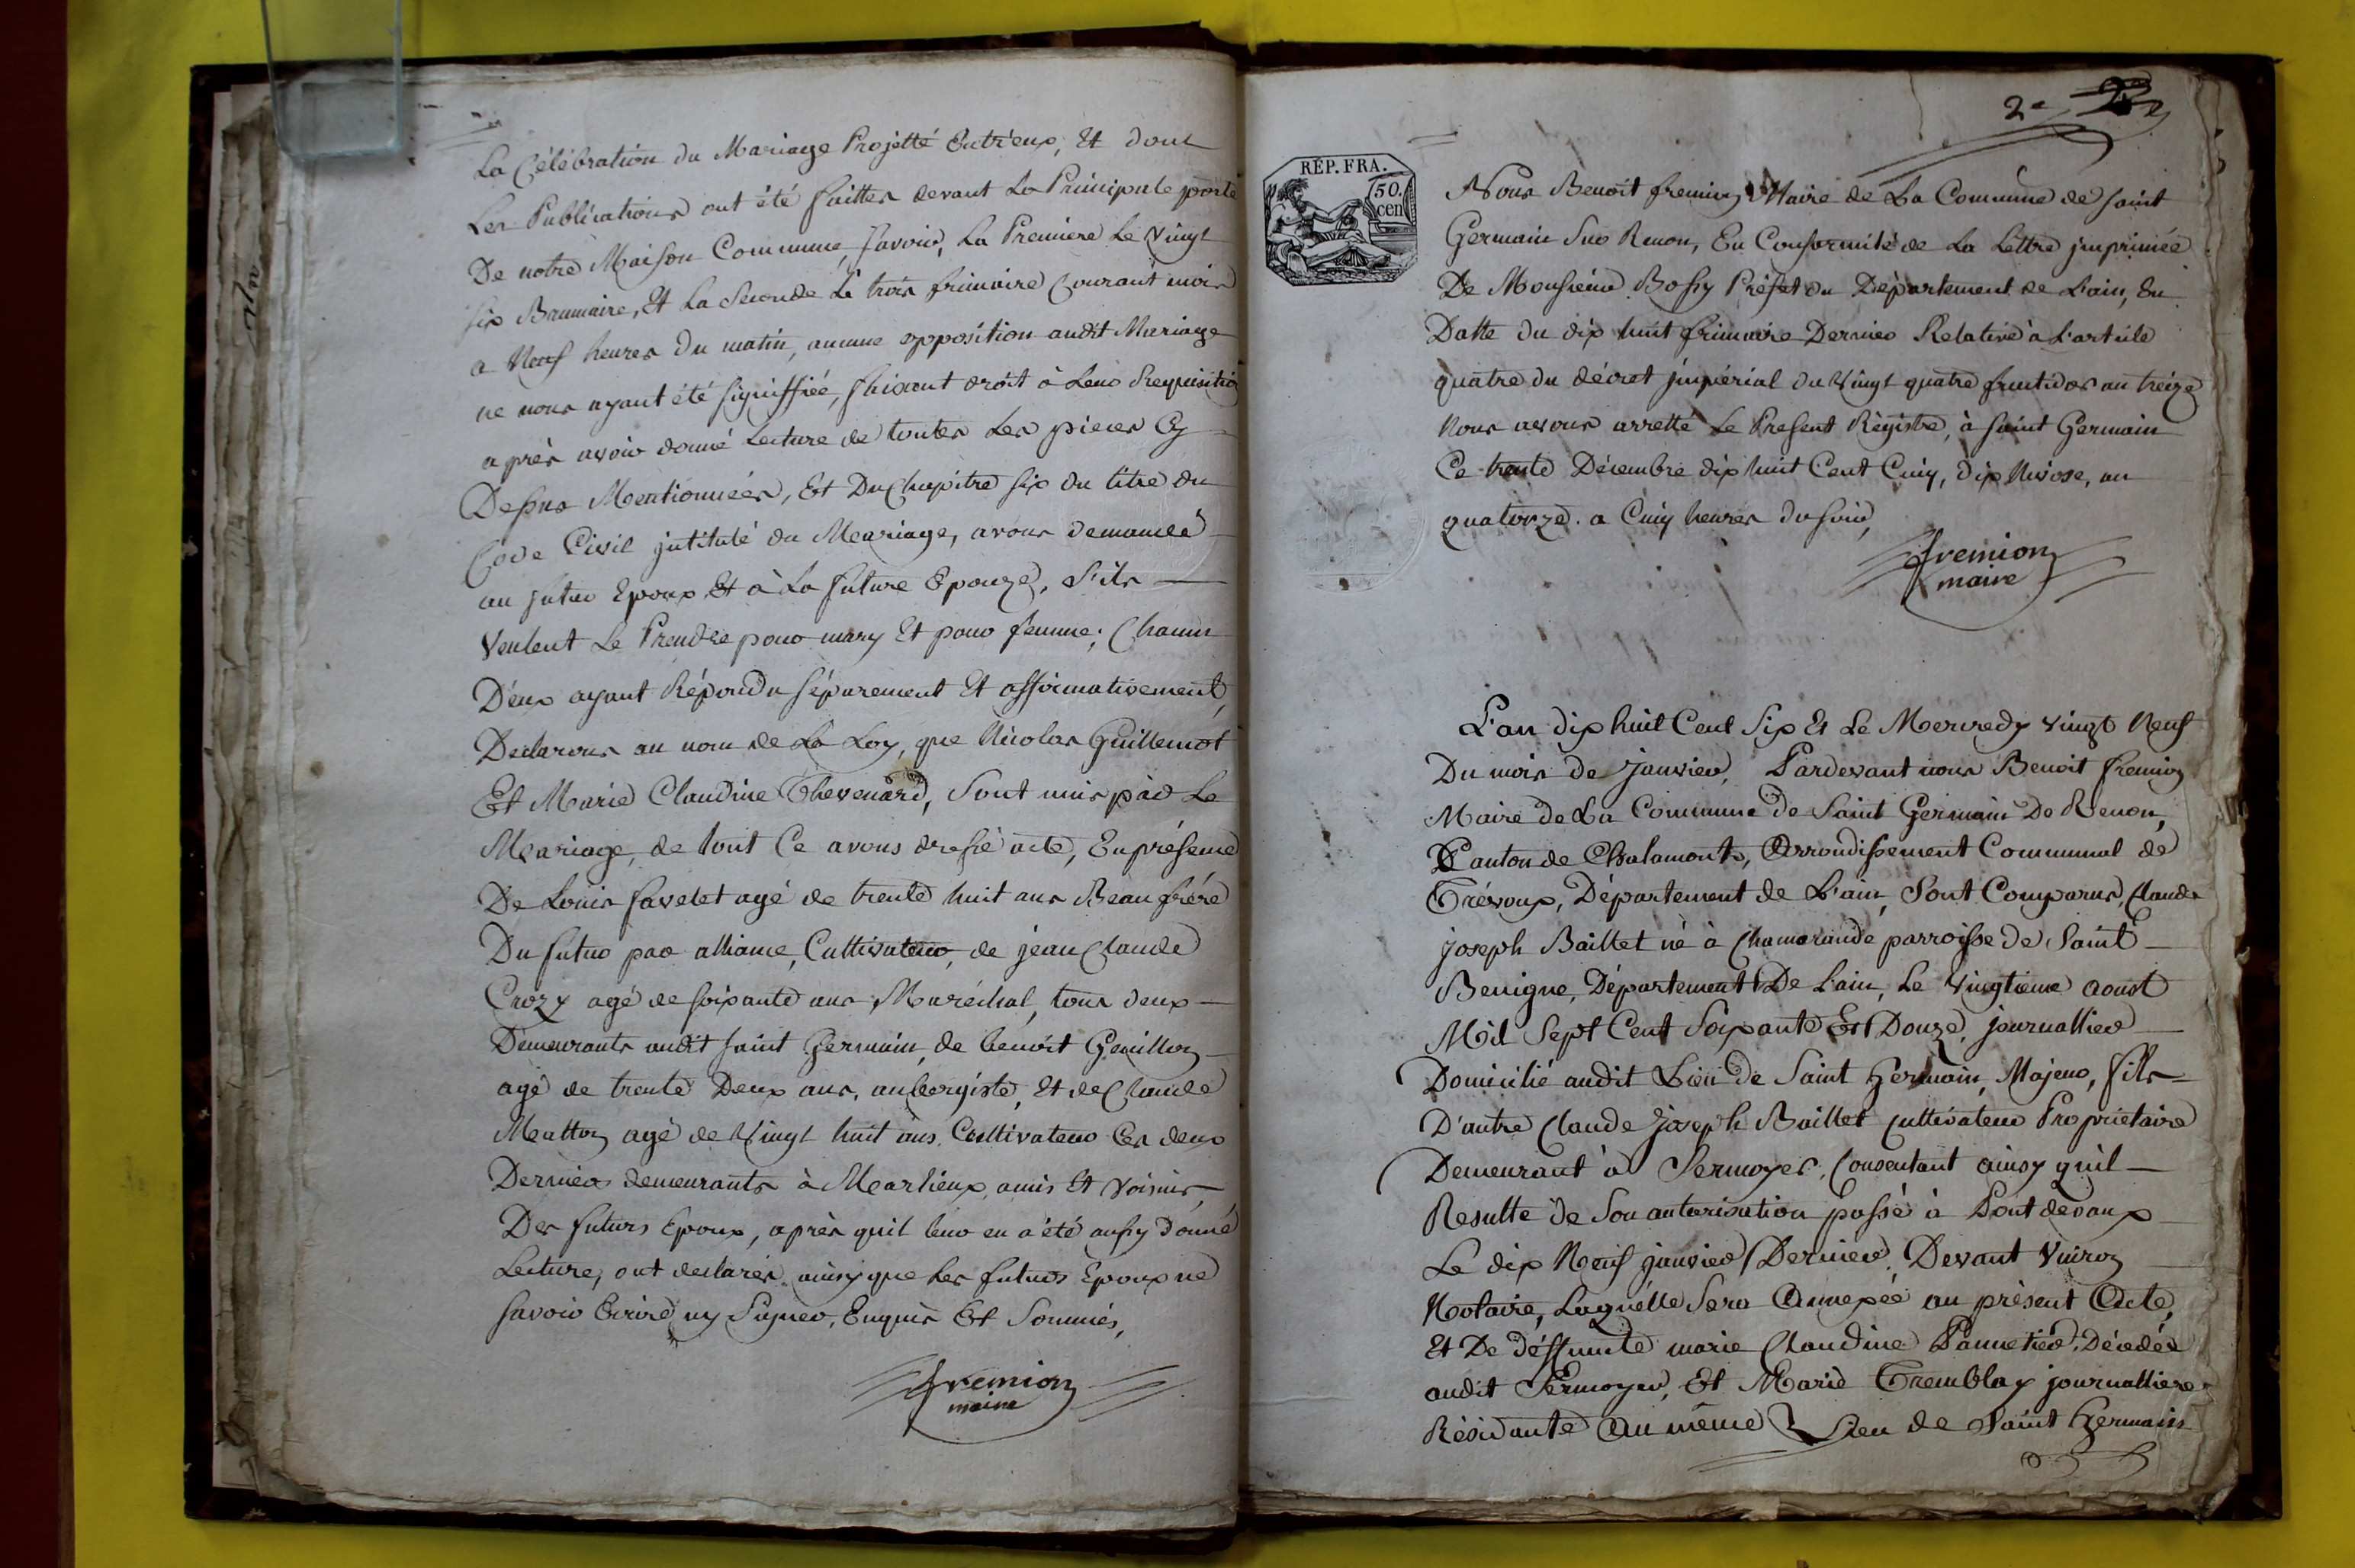 La Célébration du Mariage Projetté Entr'eux, Et dont
Les Publications ont été faittes devant La Principale porte
De notre Maison Commune, Savoir, La Premiere Le Vingt
six Brumaire, Et La Seconde Le trois frimaire Courant mois
a Neuf heures du matin, aucune opposition audit Mariage
ne nous ayant été signiffiée, faisant droit à Leur Requisition
après avoir donné Lecture de toutes Les pieces Cy
Dessus Mentionnées, Et Du Chapitre six du titre du
Code Civil jntitulé du Mariage, avons demandé
au futur Epoux Et à La future Epouze, S'ils
Veulent Le Prendre pour mary Et pour femme; Chacun
D'eux ayant Répondu séparement Et affirmativement,
Declarons au nom de La Loy, que Nicolas Guillemot
Et Marie Claudine Thevenard, Sont unis par Le
Mariage, de tout Ce avons dressé acte, En présence
De Louis favelet agé de trente huit ans Beau frère
Du futur par alliance, Cultivateur, de jean Claude
Crozy agé de soixante ans Maréchal, tous deux
Demeurants audit saint Germain, de benoit Genillon
agé de trente Deux ans, aubergiste, Et de Claude
Matton agé de Vingt huit ans Cultivateur Ces deux
Derniers demeurants à Marlieux, amis Et Voisins
Des futurs Epoux, après quil leur en a été aussy donné
Lecture, ont declarés ainsy que Les futurs Epoux ne
savoir Ecrire ny Signer, Enquis Et Sommés,
fremion
maire
2e
RÉP. FRA.
50.
cen
Nous Benoit fremion Maire de La Commune de saint
Germain Sur Renon, En Conformité de La Lettre jmprimée
De Monsieur Bossy Préfet du Département de L'ain, En
Datte du dix huit frimaire Dernier Relative à L'article
quatre du décret jmpérial du Vingt quatre fructidor an treize
Nous avons arretté Le Present Régistre, à saint Germain
Ce trente Décembre dix huit Cent Cinq, dix Nivose, an
quatorze. a Cinq heures du soir,
fremion
maire
L'an dix huit Cent Six Et Le Mercredy vingt Neuf
Du mois de Janvier, Pardevant nous Benoit fremion
Maire de La Commune de Saint Germain De Renon,
Canton de Chalamont, Arrondissement Communal de
Trévoux, Département de L'ain, Sont Comparus, Claude
joseph Baillet né à Chamerande parroisse de Saint
Benigne, Département De L'ain, Le Vingtieme Aoust
Mil Sept Cent Soixante Et Douze, journallier
Domicilié audit Lieu de Saint Germain, Majeur, fils
D'autre Claude Joseph Baillet Cultivateur Proprietaire
Demeurant à Sermoyer, Consentant ainsy quil
Resulte de Son autorisation passé à Pont devaux
Le dix Neuf janvier Dernier, Devant Vuiron
Notaire, Laquélle Sera Annexée au présent Acte,
Et De déffunte marie Claudine Pannetier, Décedée
audit Sermoyer, Et Marie Tremblay journalliere
Résidante Au même Lieu de Saint Germain